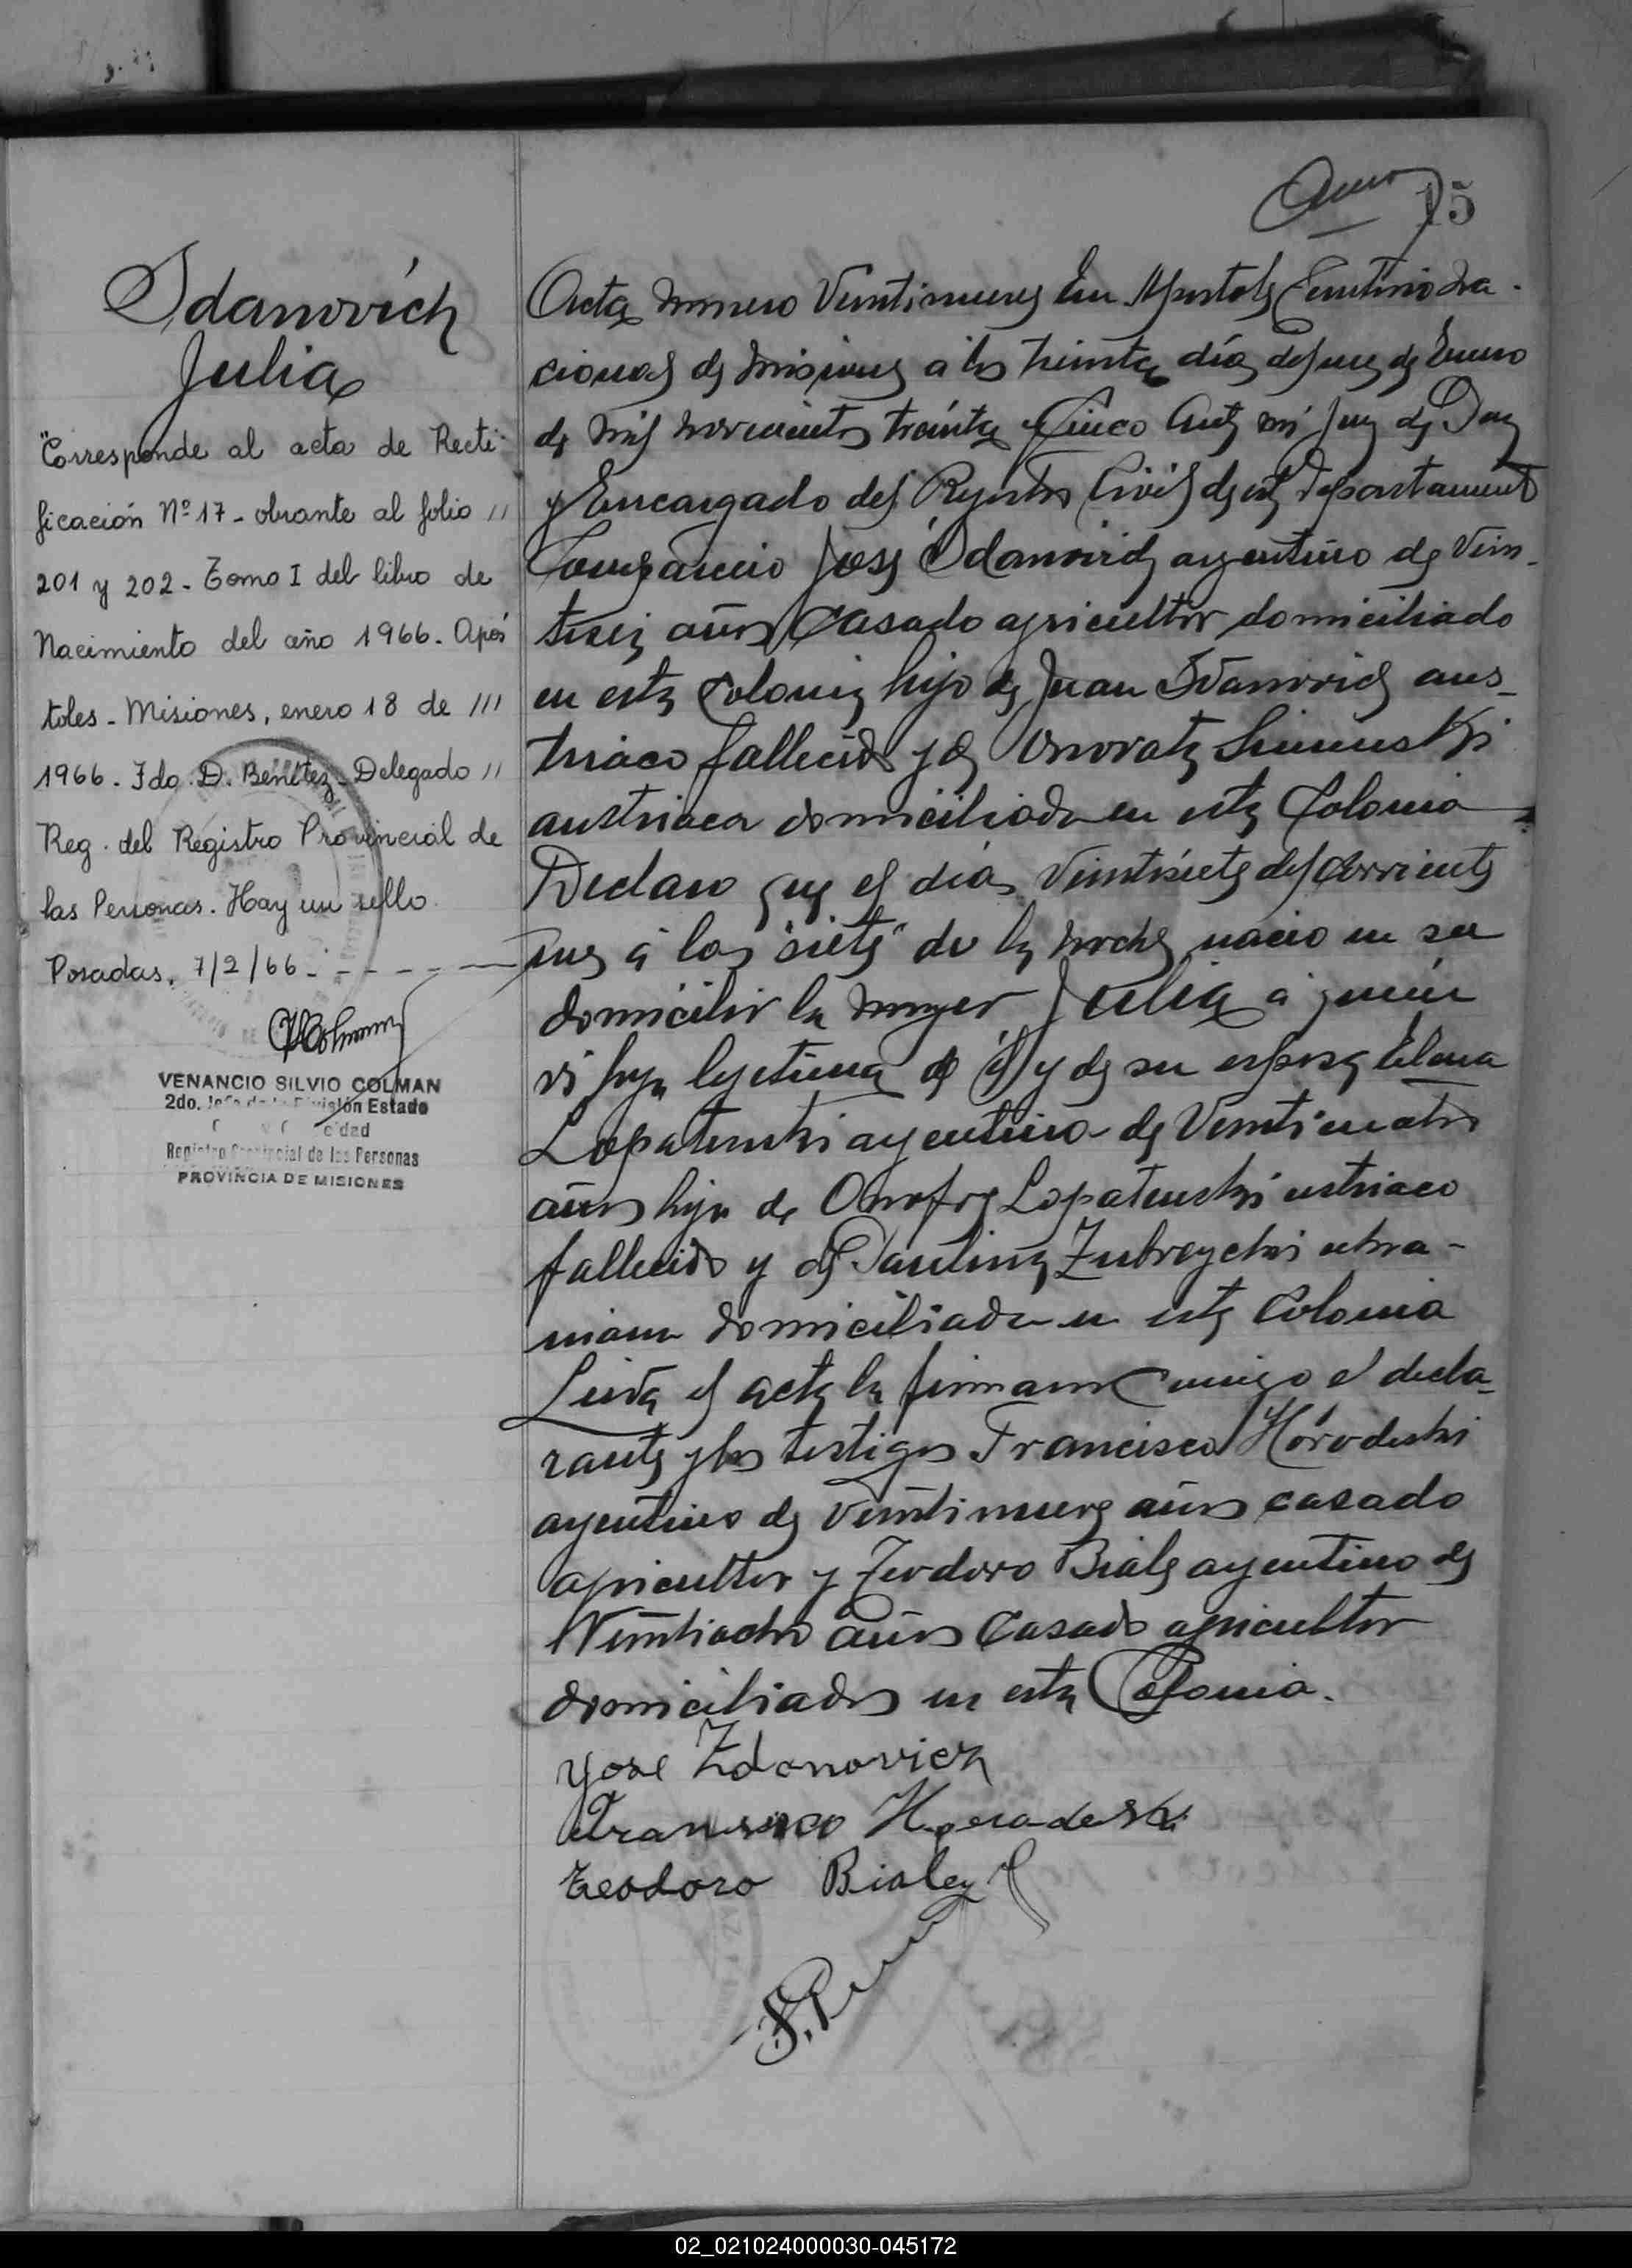 Enero 15
Idanovich
Julia
"Corresponde al acta de Recti-
ficación Nº 17 - obrante al folio //
201 y 202 - Tomo I del libro de
Nacimiento del año 1966 - Após
toles - Misiones, enero 18 de ///
1966 - Fdo. D. Benítez - Delegado //
Reg. del Registro Provincial de
las Personas. Hay un sello.
Posadas, 7/2/66 - - - - - -
VENANCIO SILVIO COLMAN
2do. Jefe de la División Estado
Registro Provincial de las Personas
PROVINCIA DE MISIONES
Acta número Veintinueve En Apostoles Territorio Na-
cional de Misiones a los treinta días del mes de Enero
de mil novecientos treinta y Cinco Ante mi Juez de Paz
y Encargado del Registro Civil de este Departamento
Comparecio José Idanovich argentino de Vein-
tiseis años Casado agricultor domiciliado
en esta Colonia hijo de Juan Idanovich aus-
triaco fallecido y de
austriaca domiciliada en esta Colonia
Declaro que el día Veintisiete del Corriente
mes a las "siete" de la noche nacio en su
domicilio la mujer Julia a quién
vi hija legitima de él y de su esposa Elena
Lopatenski argentina de Veinticuatro
años hija de Onofre Lopatenski ustriaco
fallecido y de Paulina Zubreychi ukra-
niana domiciliada en esta Colonia
Leida el acta la firmaron Conmigo el decla-
rante y los testigos Francisco Hórodeski
argentino de veintinueve años casado
agricultor y Teodoro Biale argentino de
Veintiocho años Casado agricultor
domiciliados en esta Colonia.
Yose Zdanovich
Fransisco Horadeski
Teodoro Bialey
02_021024000030-045172